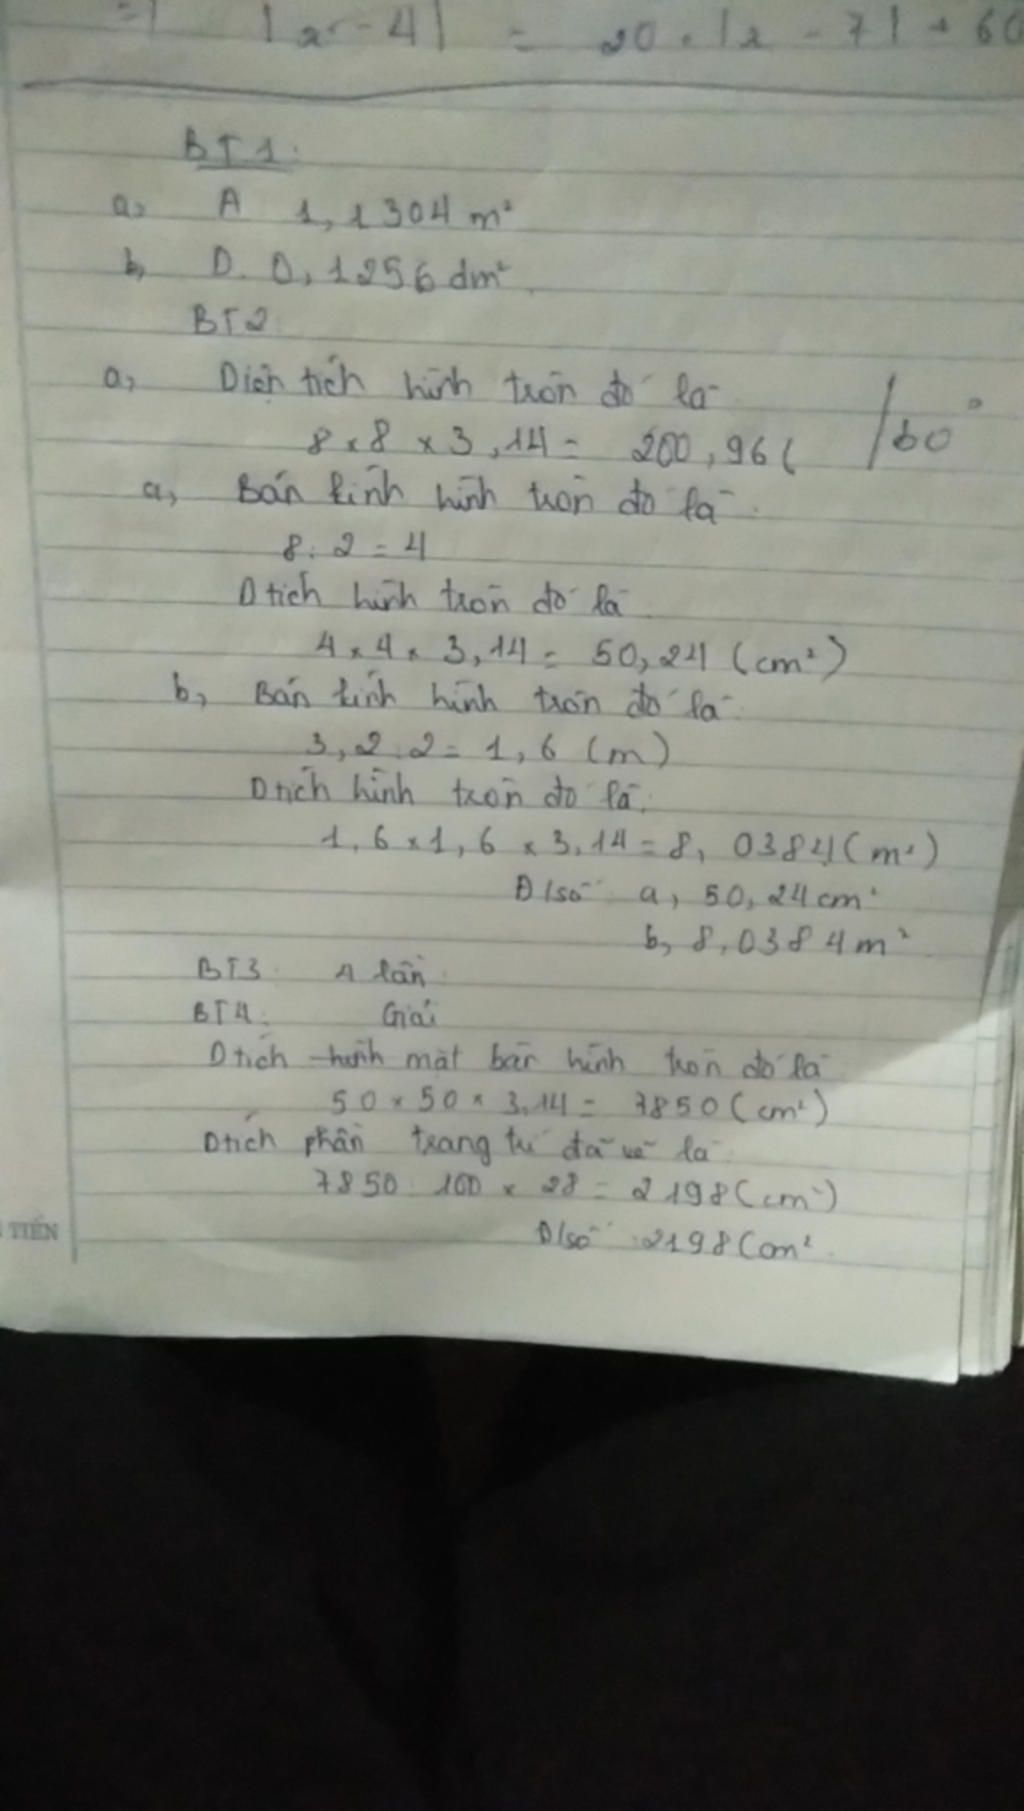 =) |x - 4| = 20 . |x - 7| + 60
BT1:
a, A 1,1304 m²
b, D. 0,1256 dm²
BT2
a, Diện tích hình tròn đó là
8 x 8 x 3,14 = 200,96 ( /bỏ
a, Bán kính hình tròn đó là
8 : 2 = 4
Dtích hình tròn đó là
4 x 4 x 3,14 = 50,24 (cm²)
b, Bán kính hình tròn đó là
3,2 : 2 = 1,6 (m)
Dtích hình tròn đó là:
1,6 x 1,6 x 3,14 = 8,0384 (m²)
Đ/số: a, 50,24 cm²
b, 8,0384 m²
BT3 4 lần
BT4: Giải
Dtích hình mặt bàn hình tròn đó là
50 x 50 x 3,14 = 7850 (cm²)
Dtích phần trang trí đã vẽ là
7850 : 100 x 28 = 2198 (cm²)
Đ/số : 2198 Cm²
TIẾN